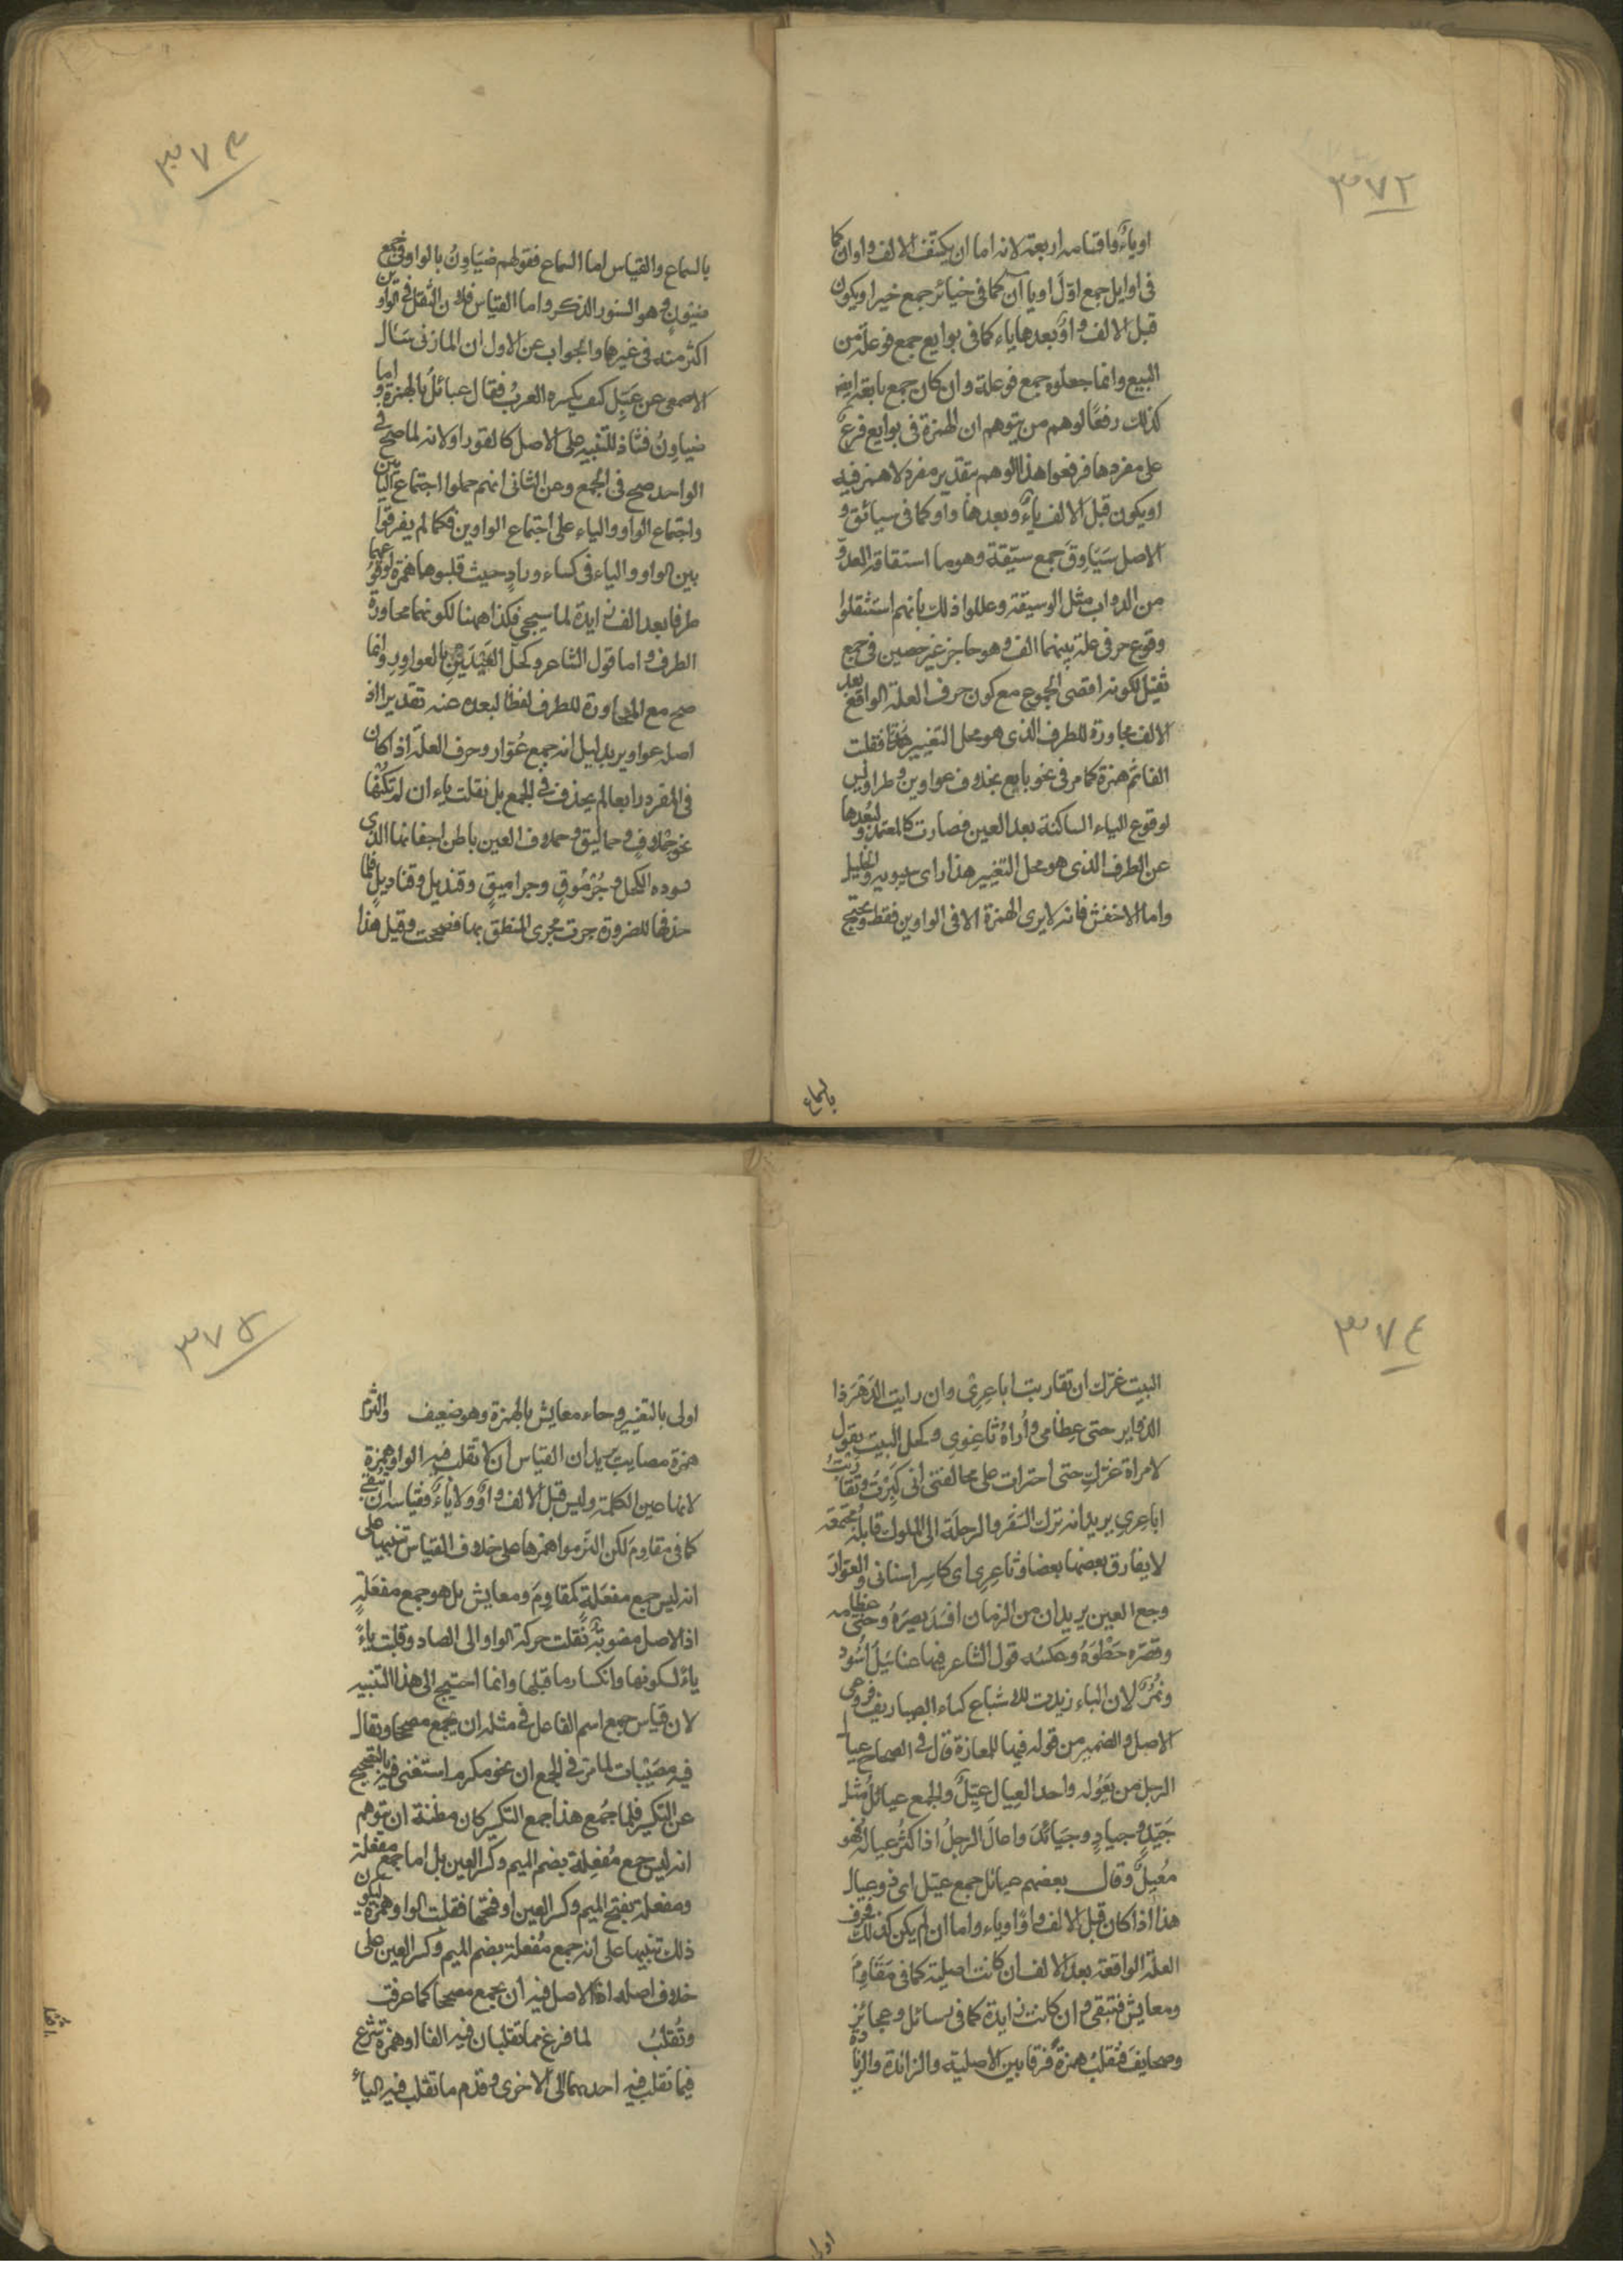 ٣٧٢
او ياءٌ واقسامه اربعة لانه اما ان يكتنف الالف واوان كما
فى اوايل جمع اوّل او ياآن كما فى خيائر جمع خير او يكون
قبل الالف واوٌ وبعدها ياء كما فى بوايع جمع فوعلة من
البيع وانما جعلوه جمع فوعلة وان كان جمع بايعة ايضا
كذلك رفعًا لوهم من يتوهم ان الهمزة فى بوايع فرع
على مفردها فرفعوا هذا الوهم بتقدير مفرد لا همز فيه
او يكون قبل الالف ياءٌ وبعدها واو كما فى سيائق و
الاصل سَيَاوِقَ جمع سيّقة وهو ما استقاقه العدوّ
من الدواب مثل الوسيقة وعللوا ذلك بانهم استثقلوا
وقوع حرفى علة بينهما الف وهو حاجز غير حصين فى جمع
ثقيل لكونه اقصى الجموع مع كون حرف العلة الواقع بعد
الالف مجاورة للطرف الذى هو محل التغيير فقلبت
الفا ثم همزة كما مر فى نحو بايع بخلاف عواوير وطراويس
لوقوع الياء الساكنة بعد العين فصارت كالمعتمد ولبُعدها
عن الطرف الذى هو محل التغيير هذا راى سيبويه والخليل
واما الاخفش فانه لا يرى الهمزة الا فى الواوين فقط ويحتج
بالسماع
٣٧٣
بالسماع والقياس اما السماع فقولهم ضَيَاوِنُ بالواو فى جمع
ضَيْوَن وهو السنور الذكر واما القياس فلان الثقل فى الواوين
اكثر منه فى غيرها والجواب عن الاول ان المازنى سَأل
الاصمعى عن عَيِّل كيف يكسره العرب فقال عيائلُ بالهمزة واما
ضياوِنُ فشاذ للتنبيه على الاصل كالقود او لانه لما صح فى
الواحد صح فى الجمع وعن الثانى انهم حملوا اجتماع اليائين
واجتماع الواو والياء على اجتماع الواوين فكما لم يفرقوا
بين الواو والياء فى كساء ورداءٍ حيث قلبوها همزة لوقوعهما
طرفا بعد الف زايدة لما سيجىء فكذا ههنا لكونهما مجاورة
الطرف واما قول الشاعر وكحل العَيْنَيْنِ بالعواوِرِ وانما
صح مع المجاورة للطرف لفظًا لبعده عنه تقديرا اذ
اصله عواوير بدليل انه جمع عُوّار وحرف العلة اذا كان
فى المفرد رابعا لم يحذف فى الجمع بل نقلت ياء ان لم تكنها
نحو حملاقٍ وحماليق وحملاق العين باطن اجفانها الذى
سوده الكحل وجُرْمُوقٍ وجراميقٍ وقنديل وقناديل فلما
حذفها للضرورة جرت مجرى المنطق بها فصحت وقيل هذا
٣٧٤
البيت غرّك ان تقاربت اباعِرى وان رايت الدهر ذا
الدواير حتى عِظَامى وأُراهُ ثاغِرى وكحل البيت يقول
لامراة غرّكِ حتى اجترات على مخالفتى انى كَبِرْتُ وتقاربت
اباعرى يريد انه ترك السَفَر والرحلَة الى الملوك فابله مجتمعة
لا يفارق بعضها بعضا وثاغِرى اى كاسِر اسنانى والعُوّار
وجع العين يريد ان من الزمان افسَدَ بصَرَهُ وحنى عظامه
وقصّره خَطْوَهُ وعكسُه قول الشاعر فيها عيائيلُ اُسُودٍ
ونُمُر لان الياء زيدت للاشباع كياء الصياريف فروعى
الاصل والضمير من قوله فيها للمفازة قال فى الصحاح عيال
الرجل من يَعُوله واحد العِيال عَيِّلٌ والجمع عيائل مثل
جَيّدٍ وجيادٍ وجَيَائدَ واعالَ الرجلُ اذا كثُر عياله فهو
مُعِيلٌ وقال بعضهم عيائل جمع عيّل اى ذو عيال
هذا اذا كان قبل الالف واوًا وياء واما ان لم يكن كذلك فحرف
العلة الواقعة بعد الالف ان كانت اصلية كما فى مَقَاوِمَ
ومعايش فتبقى وان كانت زايدة كما فى رسائل وعجائز
وصحايفَ فتقلبُ همزةً فرقا بين الاصلية والزائدة والزيادة
اولى
٣٧٥
اولى بالتغيير وجاء معايش بالهمزة وهو ضعيف والتزم
همزة مصايب يريد ان القياس ان لا تقلب فيه الواو همزة
لانها عين الكلمة وليس قبل الالف واوٌ ولا ياءٌ فقياسه ان تبقى
كما فى مقاوِمَ لكن التزموا همزها على خلاف القياس تنبيها على
انه ليس جمع مفعَلةٍ كمقاوِمَ ومعايش بل هو جمع مفعَلةٍ
اذ الاصل مصوبة نقلت حركة الواو الى الصاد وقلبت ياءً
ياءً لسكونها وانكسار ما قبلها وانما احتيج الى هذا التنبيه
لان قياس جمع اسم الفاعل فى مثله ان يجمع مصححا ويقال
فيه مصَيْبات لما مر فى الجمع ان نحو مكرم استغنى فيه بالتصحيح
عن التكسير فلما جُمع هذا جمع التكسير كان مظنة ان يتوهم
انه ليس جمع مُفعِلة بضم الميم وكسر العين بل اما جمع مفعلة
ومفعلة بفتح الميم وكسر العين او فتحها فقلبت الواو همزة ليكون
ذلك تنبيها على انه جمع مُفعلة بضم الميم وكسر العين على
خلاف اصله اذ الاصل فيه ان يجمع مصححا كما عرفت
وتُقلبُ لما فرغ مما تقلبان فيه الفا او همزة شرع
فيما تقلب فيه احدهما الى الاخرى وقدم ما تقلب فيه الياء